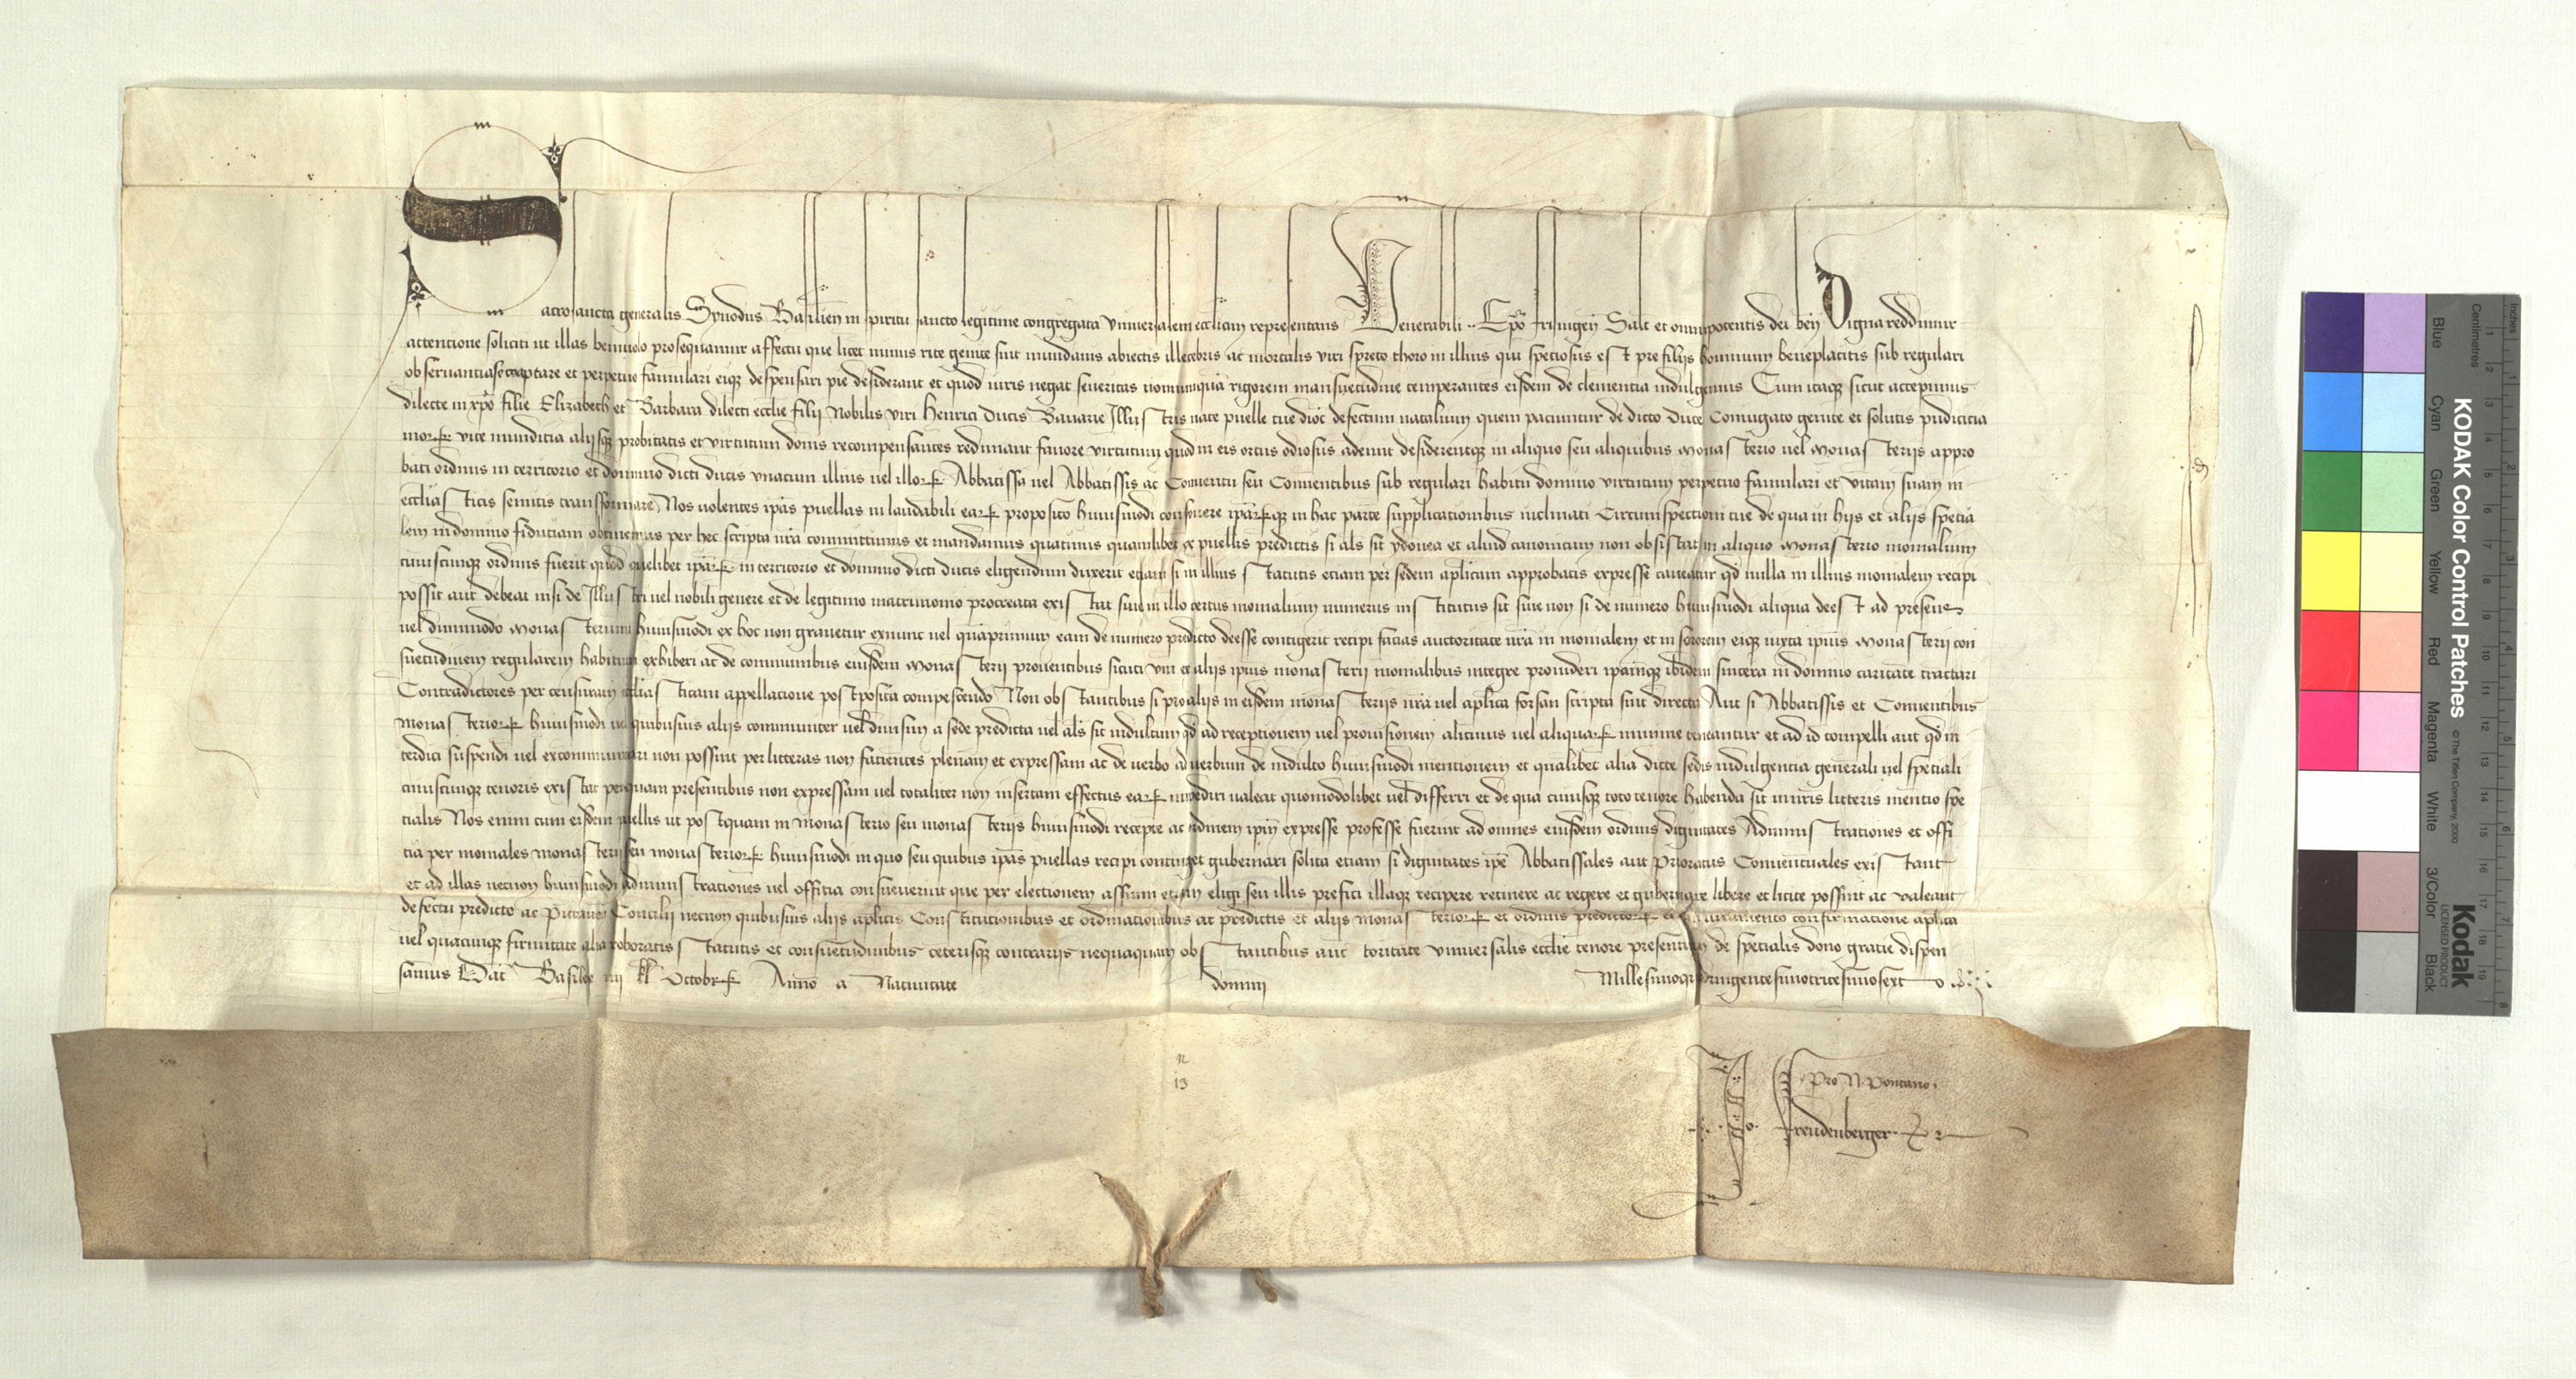 Sacrosancta generalis Synodus Basilien̄ in spiritu sancto legitime congregata vniuersalem ecc̄liam representans Venerabili .. Ep̄o frisingen̄ Salt̄ et omnipotentis dei ben̄ Digna reddimur
attentione soliciti ut illas beniuolo prosequamur affectu que licet minus rite genite sint mundanis abiectis illecebris ac mortalis viri spreto thoro in illius qui speciosus est pre filijs hominum beneplacitis sub regulari
obseruantia se coaptare et perpetuo famulari eiqꝫ despensari pie desiderant et quod iuris negat seueritas nonnunquā rigorem mansuetudine temperantes eisdem de clementia indulgemus Cum itaqꝫ sicut accepimus
dilecte in xp̄o filie Elizabeth et Barbara dilecti ecc̄lie filij Nobilis viri Henrici Ducis Bauarie Illustris nate puelle tue dioc̄ defectum natalium quem patiuntur de dicto Duce Coniugato genite et solutis pudicicia
moꝝ vite mundicia alijsqꝫ probitatis et virtutum donis recompensantes redimant fauore virtutum quod in eis ortus odiosus ademit desiderentqꝫ in aliquo seu aliquibus Monasterio uel Monasterijs appro
bati ordinis in territorio et dominio dicti ducis vnacum illius uel illoꝝ Abbatissa uel Abbatissis ac Conuentu seu Conuentibus sub regulari habitu domino virtutum perpetuo famulari et vitam suam in
ecc̄liasticis semitis transformare Nos uolentes ip̄as puellas in laudabili eaꝝ proposito huiusmodi confouere ip̄aꝝqꝫ in hac parte supplicationibus inclinati Circumspectioni tue de qua in hijs et alijs specia
lem in domino fiduciam obtinemus per hec scripta nr̄a committimus et mandamus quatinus quamlibet ex puellis predictis si al̄s sit ydonea et aliud canonicum non obsistat in aliquo Monasterio monialium
cuiuscunqꝫ ordinis fuerit quod quelibet ip̄aꝝ in territorio et dominio dicti ducis eligendum duxerit etiam si in illius statutis etiam per sedem ap̄licam approbatis expresse caueatur qd̄ nulla in illius monialem recipi
possit aut debeat nisi de Illustri uel nobili genere et de legitimo matrimonio procreata existat siue in illo certus monialium numerus institutus sit siue non si de numero huiusmodi aliqua deest ad presens
uel dummodo Monasterium huiusmodi ex hoc non grauetur exnunc uel quāprimum eam de numero predicto deesse contigerit recipi facias auctoritate nr̄a in monialem et in sororem eiqꝫ iuxta ipsius Monasterij con
suetudinem regularem habitum exhiberi ac de communibus eiusdem Monasterij prouentibus sicuti vni ex alijs ipsius monasterij monialibus integre prouideri ipsamqꝫ ibidem sincera in domino caritate tractari
Contradictores per censuram ecc̄liasticam appellatione postposita compescendo Non obstantibus si pro alijs in eisdem monasterijs nr̄a uel ap̄lica forsan scripta sint directa Aut si Abbatissis et Conuentibus
Monasterioꝝ huiusmodi uel quibusuis alijs communiter uel diuisim a sede predicta uel al̄s sit indultum qd̄ ad receptionem uel prouisionem alicuius uel aliquaꝝ minime teneantur et ad id compelli aut qd̄ in
terdici suspendi uel excommunicari non possint per litteras non facientes plenam et expressam ac de uerbo ad uerbum de indulto huiusmodi mentionem et qualibet alia dicte sedis indulgentia generali uel speciali
cuiuscunqꝫ tenoris existat per quam presentibus non expressam uel totaliter non insertam effectus eaꝝ impediri ualeat quomodolibet uel differri et de qua cuiusqꝫ toto tenore habenda sit in nr̄is litteris mentio spe
cialis Nos enim cum eisdem puellis ut postquam in Monasterio seu monasterijs huiusmodi recepte ac ordinem ip̄m expresse professe fuerint ad omnes eiusdem ordinis dignitates Administrationes et offi
cia per moniales monasterij seu monasterioꝝ huiusmodi in quo seu quibus ip̄as puellas recipi continget gubernari solita etiam si dignitates ip̄e Abbatissales aut Prioratus Conuentuales existant
et ad illas necnon huiusmodi administrationes uel officia consueuerint que per electionem assumi etiam eligi seu illis prefici illaqꝫ recipere retinere ac regere et gubernare libere et licite possint ac valeant
defectu predicto ac Pictauen̄ Concilij necnon quibusuis alijs ap̄licis Constitutionibus et ordinationibus ac predictis et alijs monasterioꝝ et ordinis predictoꝝ iuramento confirmatione ap̄lica
uel quacunqꝫ firmitate alia roboratis statutis et consuetudinibus ceterisqꝫ contrarijs nequaquam obstantibus auctoritate vniuersalis ecc̄lie tenore presentium de specialis dono gratie dispen
samus Dat̄ Basilee iiij kl̄ Octobꝝ Anno a Natiuitate domini Millesimoquadringentesimotricesimosexto
n
13
Pro N. Pontano.
Freudenberger